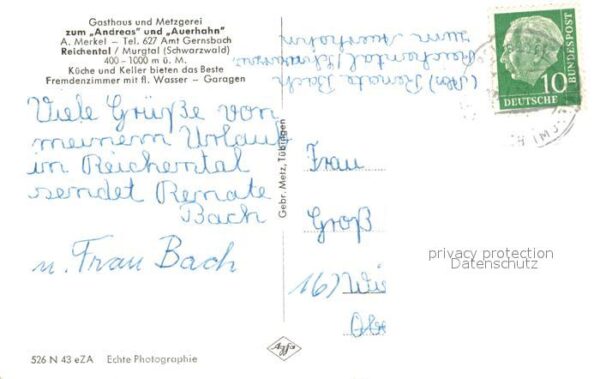 Gasthaus und Metzgerei
zum „Andreas" und „Auerhahn"
A. Merkel – Tel. 627 Amt Gernsbach
Reichental / Murgtal (Schwarzwald)
400 - 1000 m ü. M.
Küche und Keller bieten das Beste
Fremdenzimmer mit fl. Wasser – Garagen
Viele Grüße von
meinem Urlaub
in Reichental
sendet Renate
Bach
u. Frau Bach
526 N 43 eZA Echte Photographie
Gebr. Metz, Tübingen
Renate Bach
Reichental/Schwarzw.
zum Auerhahn
10
DEUTSCHE
BUNDESPOST
Frau
Groß
16) Wie
Obe
privacy protection
Datenschutz
Agfa